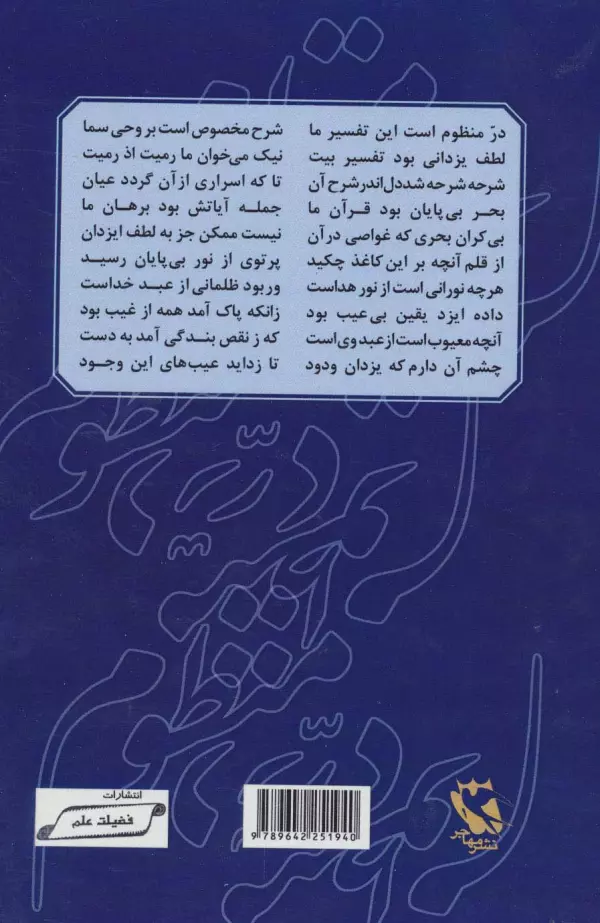 درّ منظوم است این تفسیر ما شرح مخصوص است بر وحی سما
لطف یزدانی بود تفسیر بیت نیک می‌خوان ما رمیت اذ رمیت
شرحه شرحه شد دل اندر شرح آن تا که اسراری از آن گردد عیان
بحر بی‌پایان بود قرآن ما جمله آیاتش بود برهان ما
بی‌کران بحری که غواصی در آن نیست ممکن جز به لطف ایزدان
از قلم آنچه بر این کاغذ چکید پرتوی از نور بی‌پایان رسید
هرچه نورانی است از نور هداست ور بود ظلمانی از عبد خداست
داده ایزد یقین بی‌عیب بود زانکه پاک آمد همه از غیب بود
آنچه معیوب است از عبد وی است که ز نقص بندگی آمد به دست
چشم آن دارم که یزدان ودود تا زداید عیب‌های این وجود
انتشارات
فضیلت علم
9 789642 251940
نشر مهاجر